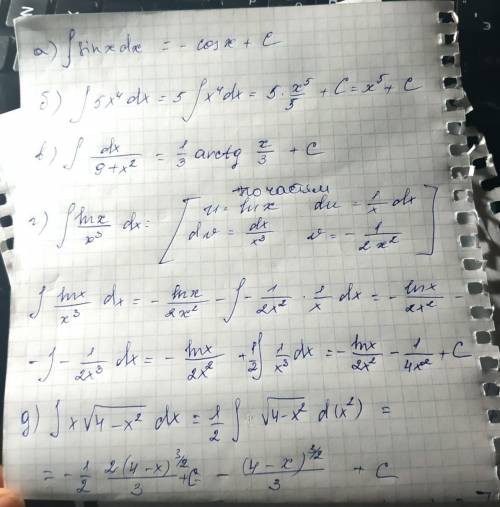 а) ∫ sin x dx = - cos x + C
б) ∫ 5x⁴ dx = 5 ∫ x⁴ dx = 5 · x⁵/5 + C = x⁵ + C
в) ∫ dx/(9 + x²) = 1/3 arctg x/3 + C
по частям
г) ∫ ln x/x³ dx = [ u = ln x du = 1/x dx
dv = dx/x³ v = - 1/(2x²) ]
∫ ln x/x³ dx = - ln x/(2x²) - ∫ - 1/(2x²) · 1/x dx = - ln x/(2x²) -
- ∫ - 1/(2x³) dx = - ln x/(2x²) + 1/2 ∫ 1/x³ dx = - ln x/(2x²) - 1/(4x²) + C
д) ∫ x √(4 - x²) dx = 1/2 ∫ √(4 - x²) d(x²) =
= - 1/2 2(4 - x)^(3/2)/3 + C - (4 - x)^(3/2)/3 + C